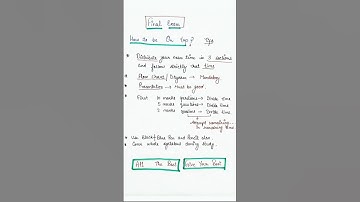 Final Exam
How to be On Top? Tips
• Distribute your exam time in 3 sections
and follow strictly that time
• Flow Chart / Diagram → Mandatory
• Presentation → Must be good.
• First 10 marks questions → Divide time
5 marks questions → Divide time
2 marks questions → Divide time
Attempt remaining...
in remaining time
• Use Black/Blue Pen and Pencil also
• Cover whole syllabus during study.
All The Best
Give Your Best